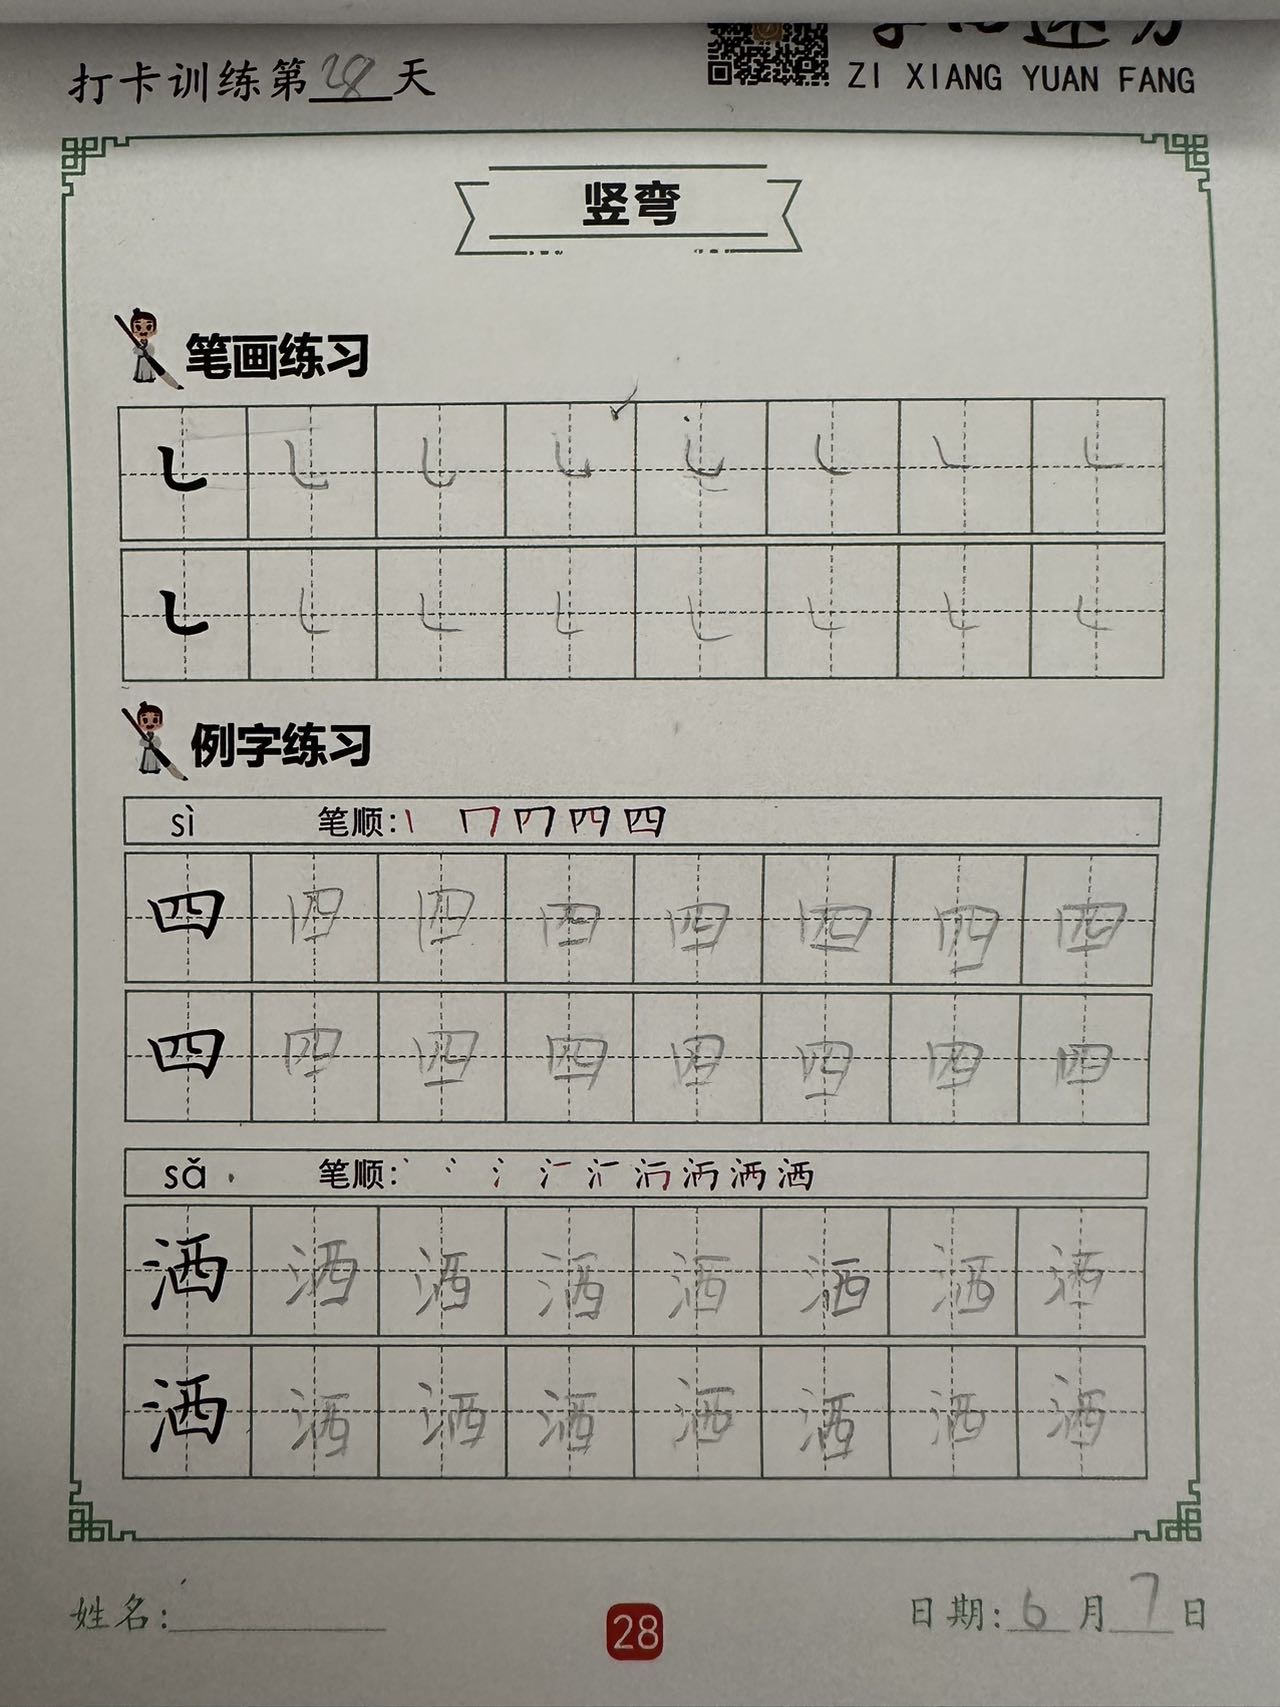 打卡训练第28天
ZI XIANG YUAN FANG
竖弯
笔画练习
㇄ ㇄ ㇄ ㇄ ㇄ ㇄ ㇄ ㇄
㇄ ㇄ ㇄ ㇄ ㇄ ㇄ ㇄ ㇄
例字练习
sì 笔顺: 四
四 四 四 四 四 四 四 四
四 四 四 四 四 四 四 四
sǎ 笔顺: 洒
洒 洒 洒 洒 洒 洒 洒 洒
洒 洒 洒 洒 洒 洒 洒 洒
姓名:
28
日期:6月7日